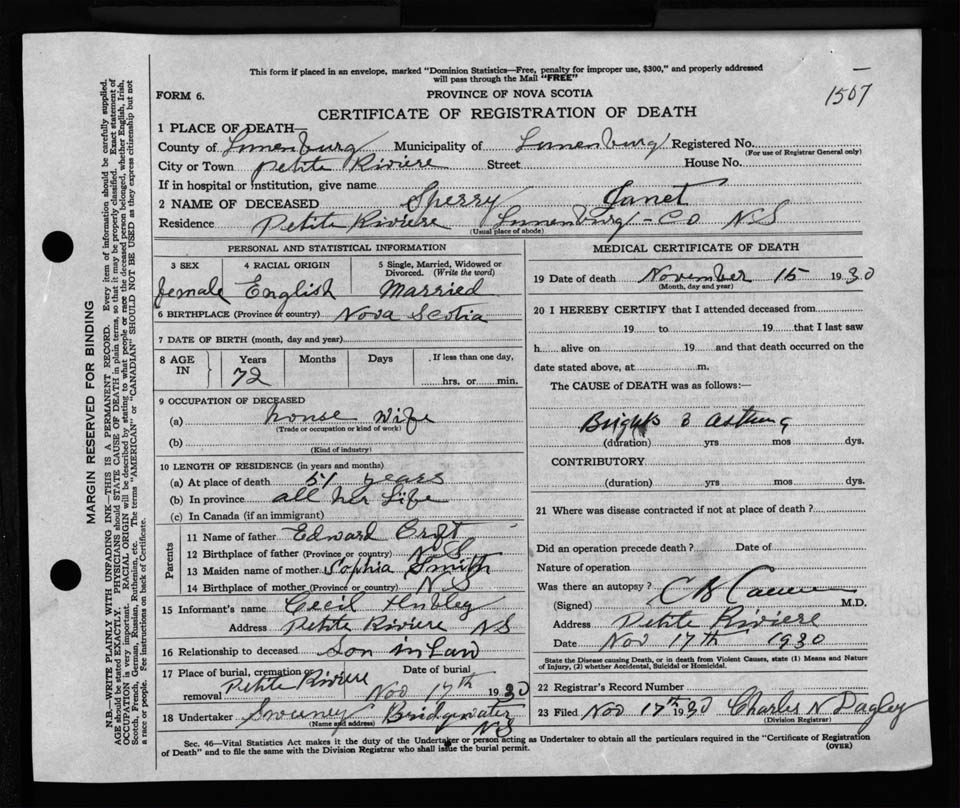 This form if placed in an envelope, marked "Dominion Statistics—Free, penalty for improper use, $300," and properly addressed
will pass through the Mail "FREE"
FORM 6.
PROVINCE OF NOVA SCOTIA
1507
CERTIFICATE OF REGISTRATION OF DEATH
1 PLACE OF DEATH—
County of Lunenburg Municipality of Lunenburg Registered No.
(For use of Registrar General only)
City or Town Petite Riviere Street House No.
If in hospital or institution, give name
2 NAME OF DECEASED Sperry Janet
Residence Petite Riviere Lunenburg - Co NS
(Usual place of abode)
PERSONAL AND STATISTICAL INFORMATION
3 SEX 4 RACIAL ORIGIN 5 Single, Married, Widowed or
Divorced. (Write the word)
female English Married
6 BIRTHPLACE (Province or country) Nova Scotia
7 DATE OF BIRTH (month, day and year)
8 AGE IN Years Months Days If less than one day,
72 hrs. or min.
9 OCCUPATION OF DECEASED
(a) house wife
(Trade or occupation or kind of work)
(b)
(Kind of industry)
10 LENGTH OF RESIDENCE (in years and months)
(a) At place of death 51 years
(b) In province all her life
(c) In Canada (if an immigrant)
Parents
11 Name of father Edward Croft
12 Birthplace of father (Province or country) NS
13 Maiden name of mother Sophia Smith
14 Birthplace of mother (Province or country) NS
15 Informant's name Cecil
Address Petite Riviere NS
16 Relationship to deceased Son in Law
17 Place of burial, cremation or Date of burial
removal Petite Riviere Nov 17th 1930
18 Undertaker Sweeney Bridgewater
(Name and address) NS
MEDICAL CERTIFICATE OF DEATH
19 Date of death November 15 1930
(Month, day and year)
20 I HEREBY CERTIFY that I attended deceased from
19 to 19 that I last saw
h alive on 19 and that death occurred on the
date stated above, at m.
The CAUSE of DEATH was as follows:—
Brights & asthma
(duration) yrs mos dys.
CONTRIBUTORY
(duration) yrs mos dys.
21 Where was disease contracted if not at place of death?
Did an operation precede death? Date of
Nature of operation
Was there an autopsy?
(Signed) M.D.
Address Petite Riviere
Date Nov 17th 1930
State the Disease causing Death, or in death from Violent Causes, state (1) Means and Nature
of Injury, (2) whether Accidental, Suicidal or Homicidal.
22 Registrar's Record Number
23 Filed Nov 17th 1930 Charles N Dagley
(Division Registrar)
Sec. 46—Vital Statistics Act makes it the duty of the Undertaker or person acting as Undertaker to obtain all the particulars required in the "Certificate of Registration
of Death" and to file the same with the Division Registrar who shall issue the burial permit.
(OVER)
MARGIN RESERVED FOR BINDING
N.B.—WRITE PLAINLY WITH UNFADING INK—THIS IS A PERMANENT RECORD. Every item of information should be carefully supplied.
AGE should be stated EXACTLY. PHYSICIANS should STATE CAUSE OF DEATH in plain terms, so that it may be properly classified. Exact statement of
OCCUPATION is very important. RACIAL ORIGIN will be described by stating to what people or race the deceased person belonged, whether English, Irish,
Scotch, French, German, Russian, Ruthenian, etc. The terms "AMERICAN" or "CANADIAN" SHOULD NOT BE USED as they express citizenship but not
a race or people. See instructions on back of Certificate.